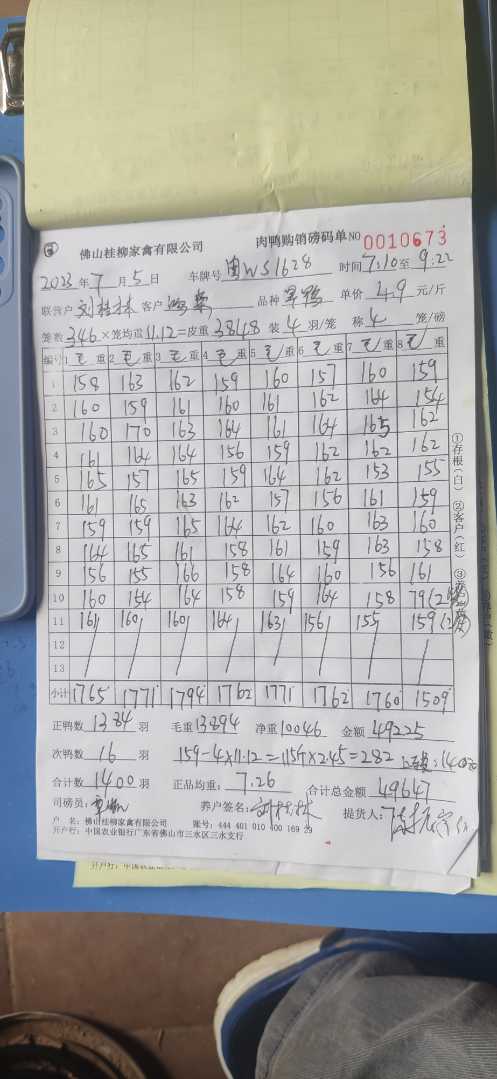 佛山桂柳家禽有限公司 肉鸭购销磅码单 NO 0010673
2023年7月5日 车牌号 闽WS1628 时间 7:10至9:22
联营户 刘桂林 客户 品种 单价 4.9 元/斤
笼数 346×笼均重 11.12=皮重 3848 装 4 羽/笼 称 4 笼/磅
编号 1 毛 重 2 毛 重 3 毛 重 4 毛 重 5 毛 重 6 毛 重 7 毛 重 8 毛 重
1 158 163 162 159 160 157 160 159
2 160 159 161 160 161 162 164 154
3 160 170 163 164 161 164 165 162
4 161 164 164 156 159 162 162 162
5 165 157 165 159 164 162 153 155
6 161 165 163 162 157 156 161 159
7 159 159 165 164 162 160 163 160
8 164 165 161 158 161 159 163 158
9 156 155 166 158 164 160 156 161
10 160 154 164 158 159 164 158 79(2
11 161 160 160 164 163 156 155 159(
12
13
小计 1765 1771 1794 1762 1771 1762 1760 1509
正鸭数 1384 羽 毛重 13894 净重 10046 金额 49225
次鸭数 16 羽 159-4×11.12=115斤×2.45=282
合计数 1400 羽 正品均重: 7.26 合计总金额 49647
司磅员: 养户签名: 刘桂林 提货人:
户 名: 佛山桂柳家禽有限公司 账号: 444 401 010 400 169 29
开户行: 中国农业银行广东省佛山市三水区三水支行
①存根(白) ②客户(红) ③